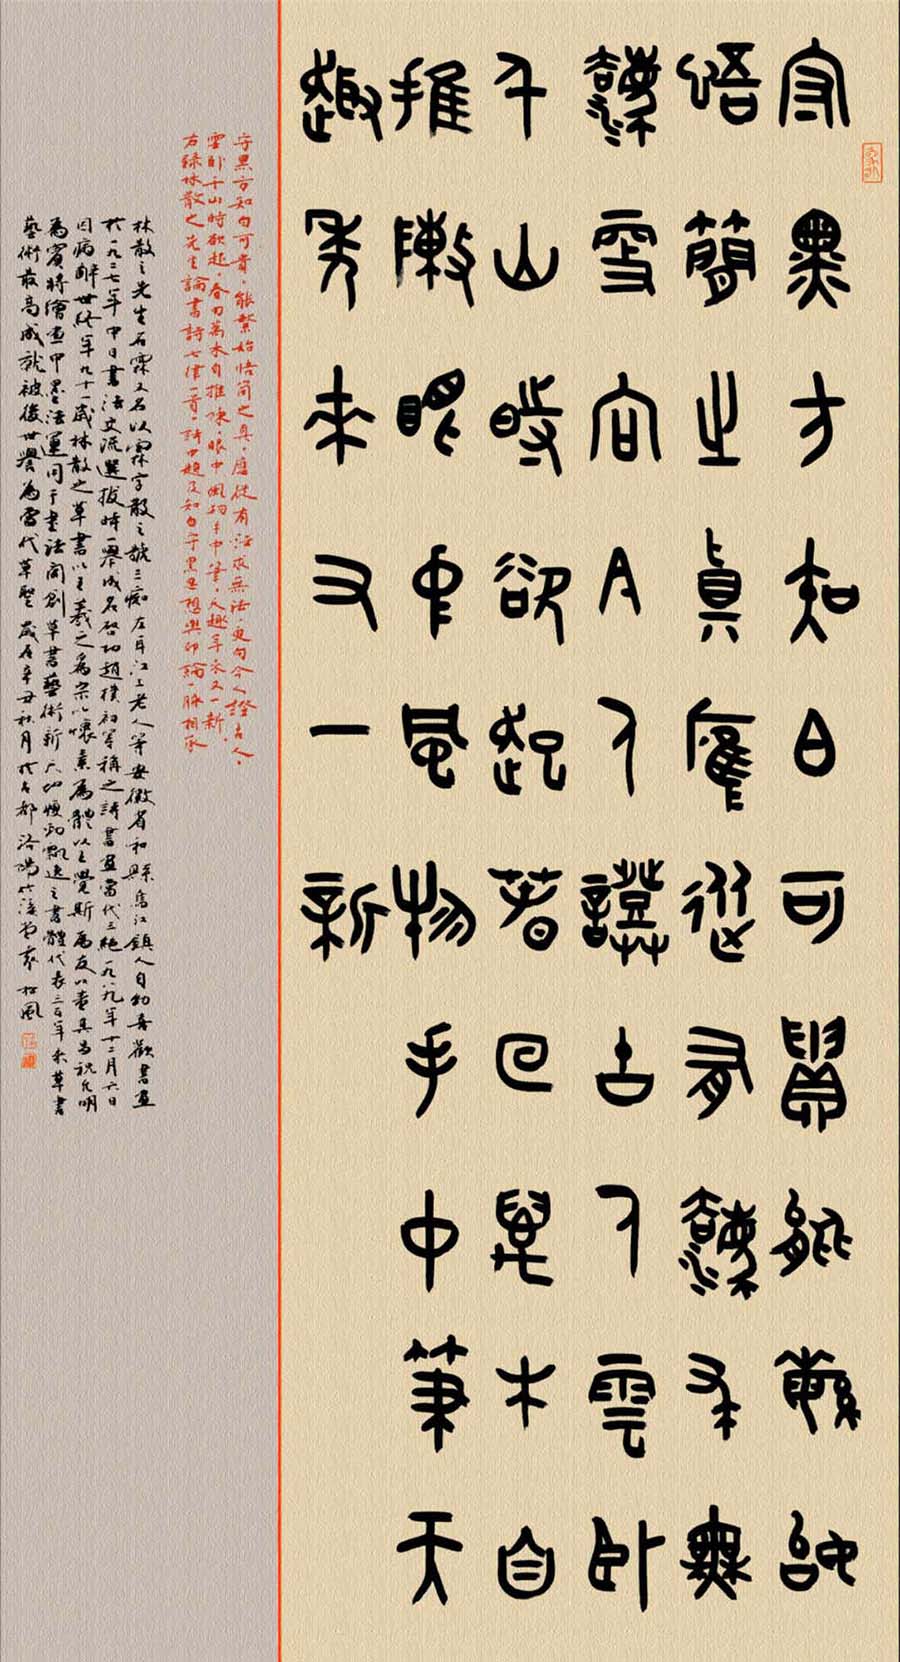 守黑方知白可貴能繁始
悟簡之真應從有法求無
法更向今人證古人雲卧
千山時欲起春回萬木自
推陳眼中風物手中筆天
趣年來又一新
守黑方知白可貴，能繁始悟簡之真，應從有法求無法，更向今人證古人，
雲卧千山時欲起，春回萬木自推陳，眼中風物手中筆，天趣年來又一新。
右錄林散之先生論書詩七律一首，詩中題及知白守黑思想與印論一脈相承
林散之先生名霖又名以霖字散之號三痴左耳江上老人等安徽省和縣烏江鎮人自幼喜歡書畫
於一九七二年中日書法交流選拔時一舉成名啓功趙樸初等稱之詩書畫當代三絕一九八九年十二月六日
因病辭世終年九十一歲林散之草書以王羲之爲宗以懷素爲體以王覺斯爲友以董其昌祝允明
爲賓將繪畫中墨法運用于書法開創草書藝術新天地瘦勁飄逸之書體代表三百年來草書
藝術最高成就被後世譽爲當代草聖歲在辛丑秋月於古都洛陽竹溪堂松風